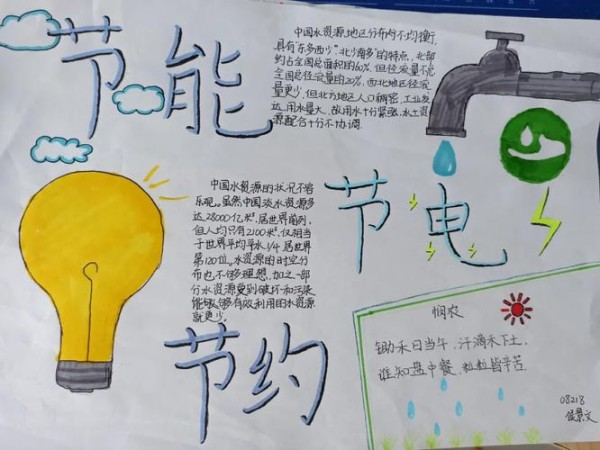 节能
中国水资源地区分布不均衡,
具有“东多西少”,北少南多”的特点,北部
约占全国总面积的60%,但径流量不足
全国总径流量的20%,西北地区径流
量更少,但北方地区人口稠密,工业发
达,用水量大,故用水十分紧张,水土资
源配合十分不协调.
中国水资源的状况不容
乐观。虽然中国淡水资源多
达28000亿米³,居世界前列,
但人均只有2100米³,仅相当
于世界平均寻水1/4居世界
第120位。水资源的时空分
布也不够理想,加之一部
分水资源受到破坏和污染
能够有效利用的水资源
就更少。
节电
节约
悯农
锄禾日当午,汗滴禾下土,
谁知盘中餐,粒粒皆辛苦
08218
景文